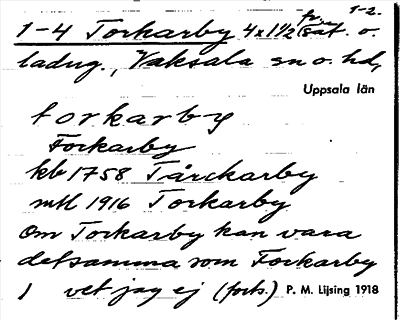 1-2.
1-4 Torkarby 4x1 1/2 fr. sat. o.
ladug., Vaksala sn o. hd,
Uppsala län
torkarby
Torkarby
kb 1758 Tårckarby
mtl 1916 Torkarby
Om Torkarby kan vara
detsamma som Forkarby
vet jag ej (forts.) P. M. Lijsing 1918